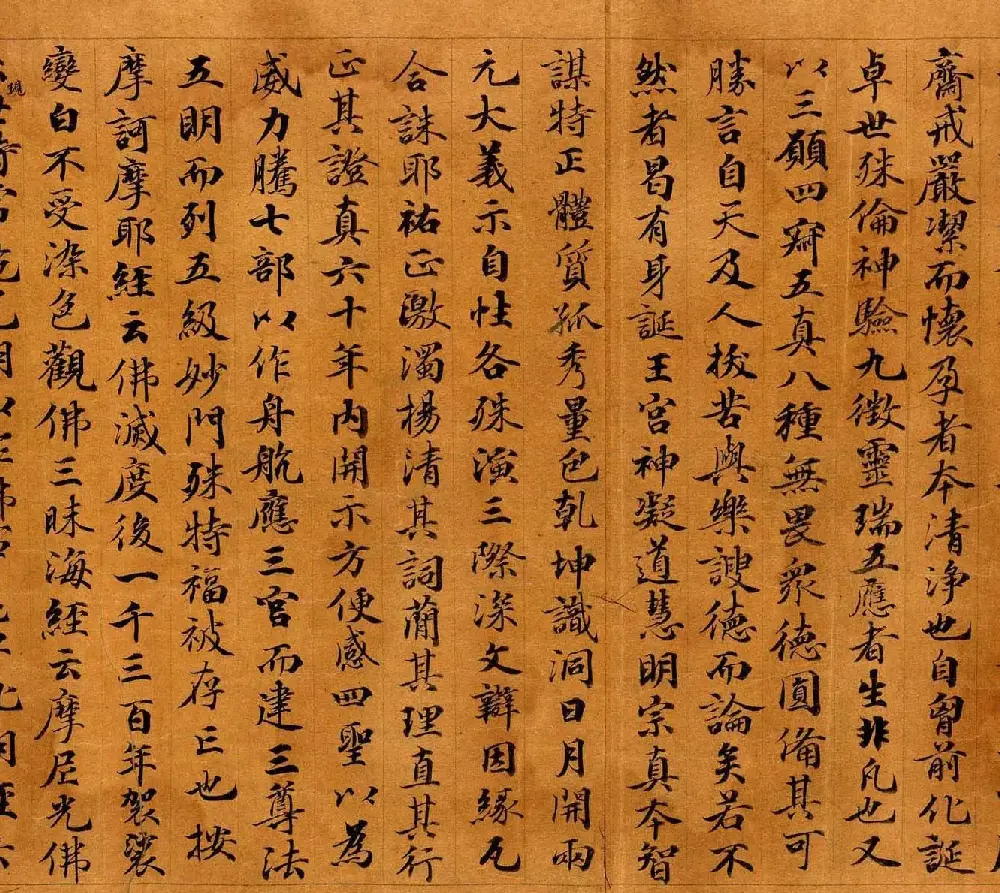 齋戒嚴潔而懷孕者本清淨也自胷前化誕
卓世殊倫神驗九徵靈瑞五應者生非凡也又
以三願四寂五真八種無畏衆德圓備其可
勝言自天及人拔苦與樂謏德而論矣若不
然者曷有身誕王宮神凝道慧明宗真本智
謀特正體質孤秀量包乹坤識洞日月開兩
元大義示自性各殊演三際深文辯因緣瓦
合誅耶祐正激濁楊清其詞蕳其理直其行
正其證真六十年内開示方便感四聖以為
威力騰七部以作舟航應三宮而建三尊法
五明而列五級妙門殊特福被存亡也按
摩訶摩耶經云佛滅度後一千三百年袈裟
變白不受染色觀佛三昧海經云摩尼光佛